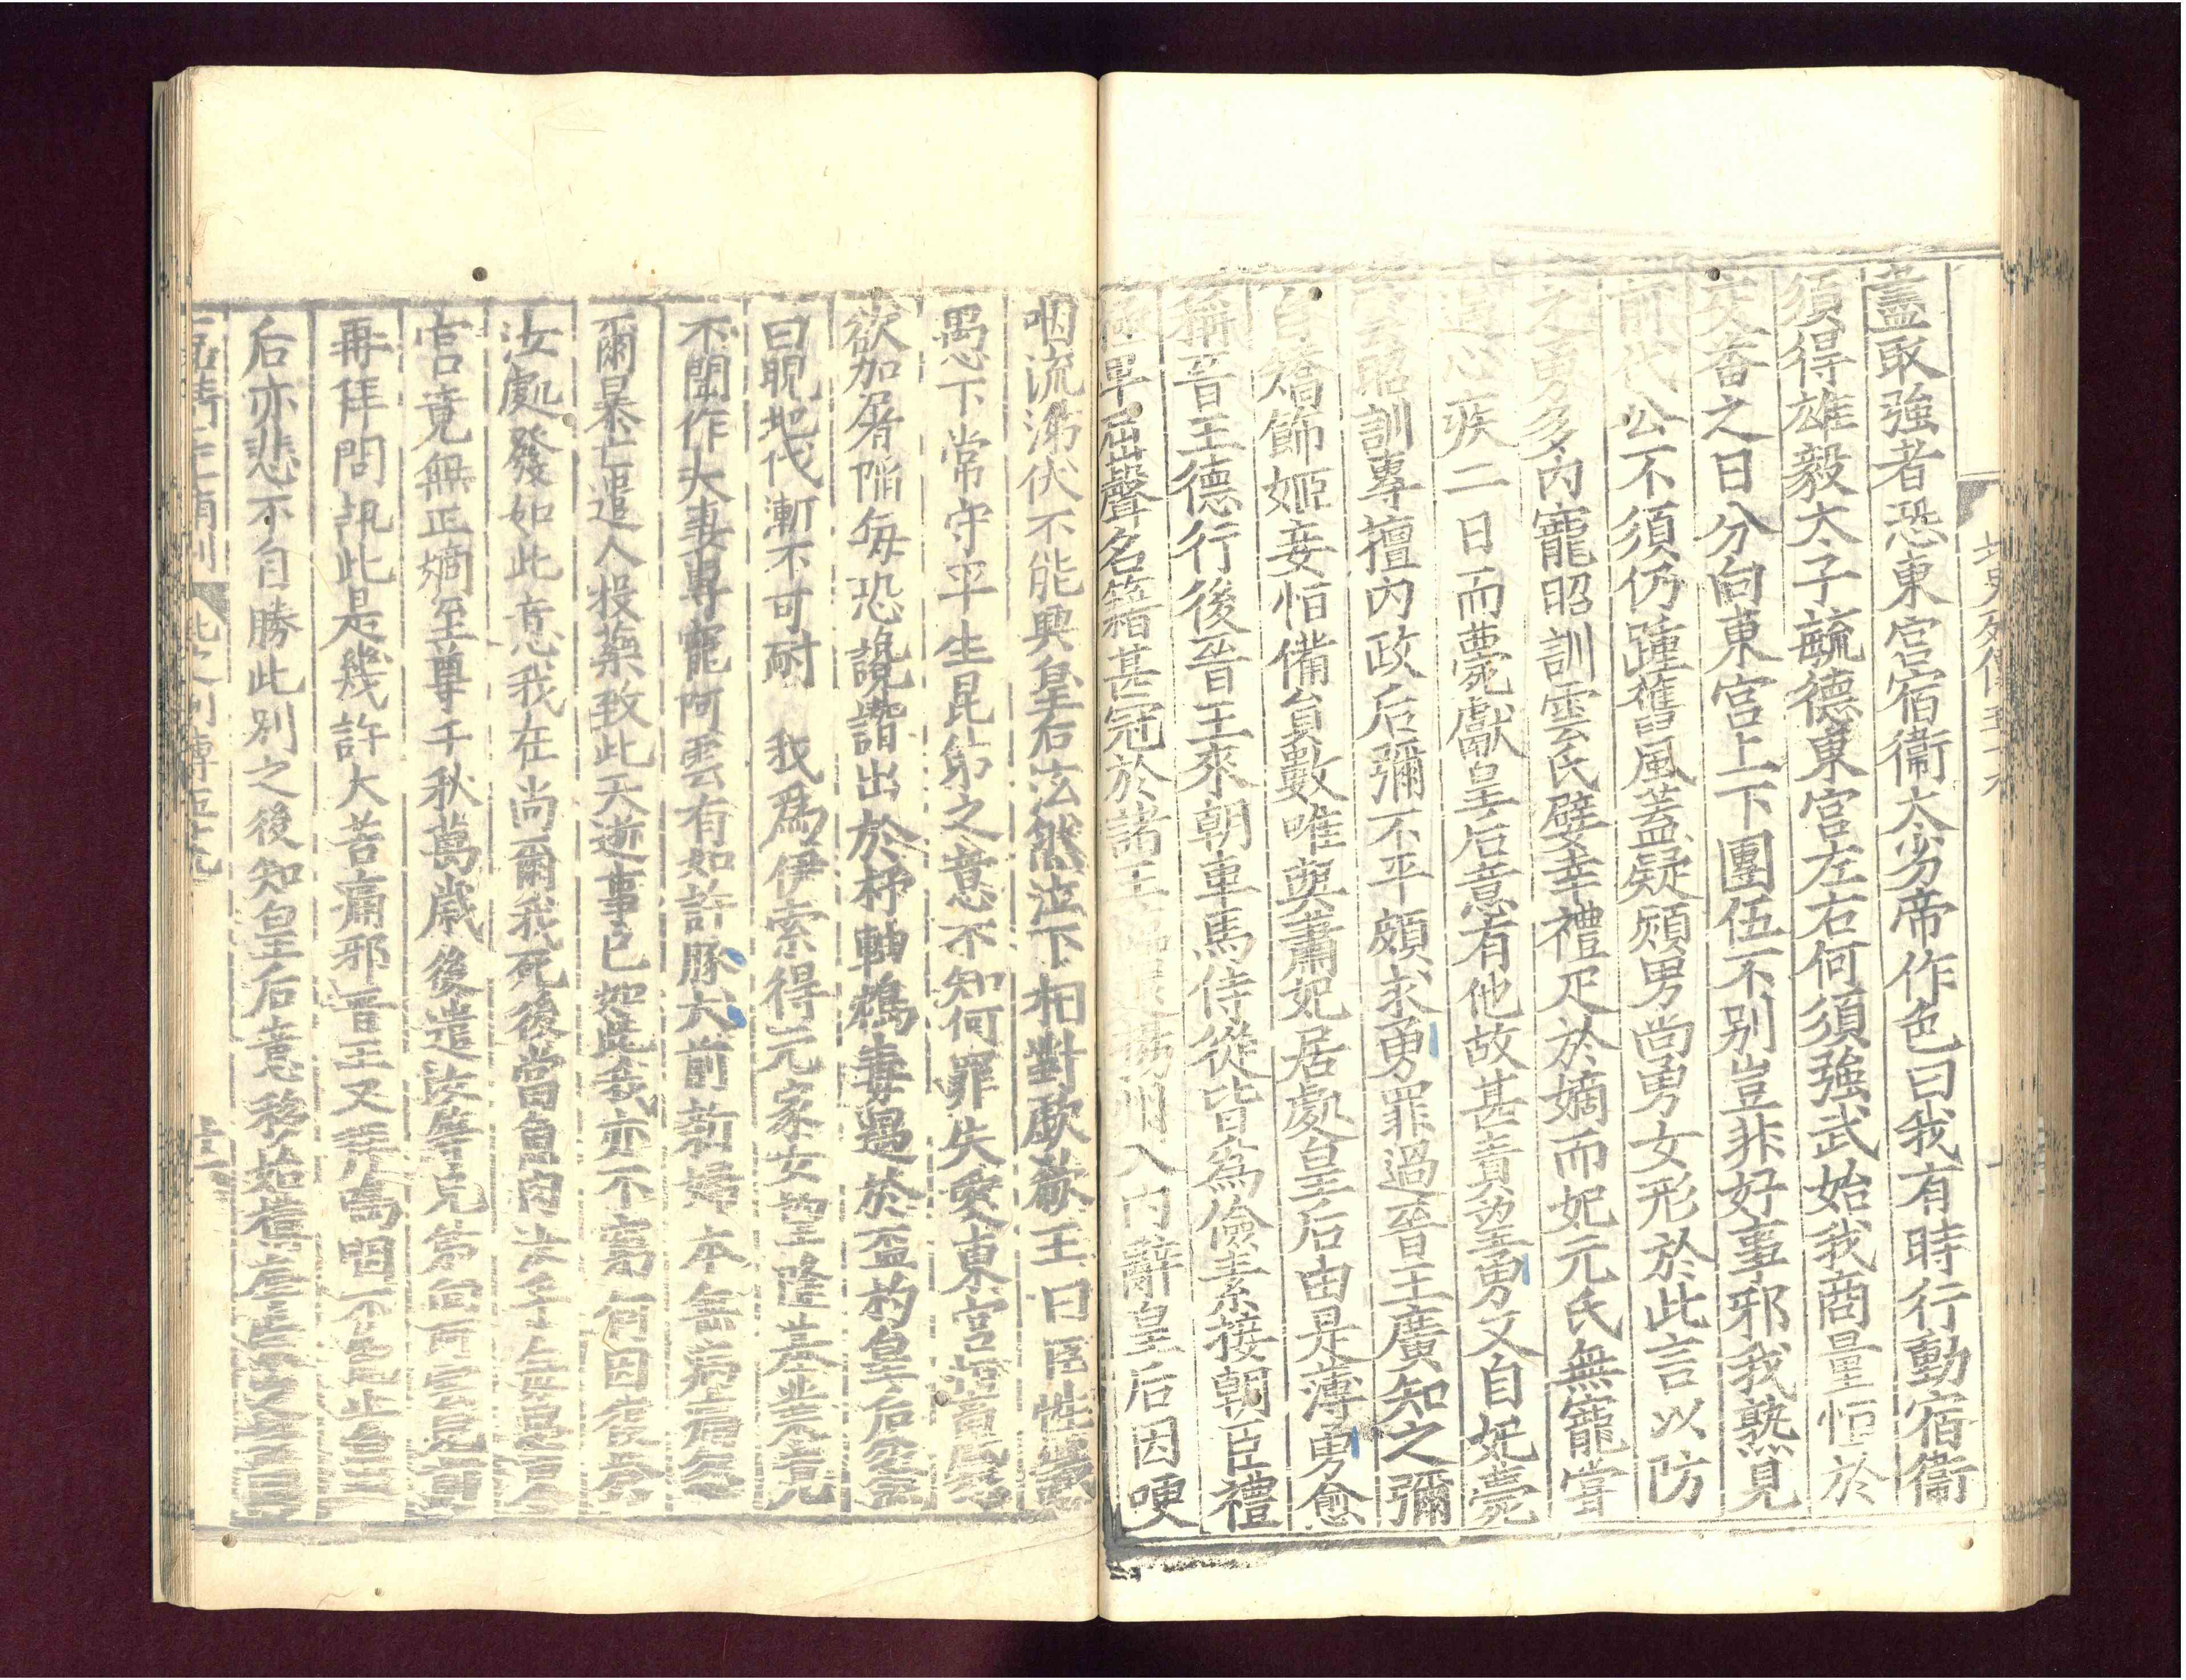 盡取強者恐東宮宿衞太劣帝作色曰我有時行動宿衞
須得雄毅太子毓德東宮左右何須強武始我商量恒於
交番之日分向東宮上下團伍不別豈非好事邪我熟見
前代公不須仍踵舊風蓋疑熲男尚勇女形於此言以防
之勇多內寵昭訓雲氏嬖幸禮疋於嫡而妃元氏無寵嘗
遇心疾二日而薨獻皇后意有他故甚責望勇又自妃薨
雲昭訓專擅內政后彌不平頗求勇罪過晉王廣知之彌
自矯飾姬妾恒備員數唯與蕭妃居處皇后由是薄勇愈
稱晉王德行後晉王來朝車馬侍從皆爲儉素接朝臣禮
極卑屈聲名籍甚冠於諸王揚州入內辭皇后因哽
咽流涕伏不能興皇后泫然泣下相對歔欷王曰臣性識
愚下常守平生昆弟之意不知何罪失愛東宮恒蓄盛怒
欲加屠陷每恐讒譖出於杼軸鴆毒遇於盃杓皇后忿然
曰睍地伐漸不可耐我爲伊索得元家女望隆基業竟
不聞作夫妻專寵阿雲有如許豚犬前新婦本無病痛忽
爾暴亡遣人投藥致此夭逝事已如此我亦不窮何因復於
汝處發如此意我在尚爾我死後當魚肉汝乎每思東
宮竟無正嫡至尊千秋萬歲後遣汝等兄弟向阿雲兒前
再拜問訊此是幾許大苦痛邪晉王又拜嗚咽不能止皇
后亦悲不自勝此別之後知皇后意移始構